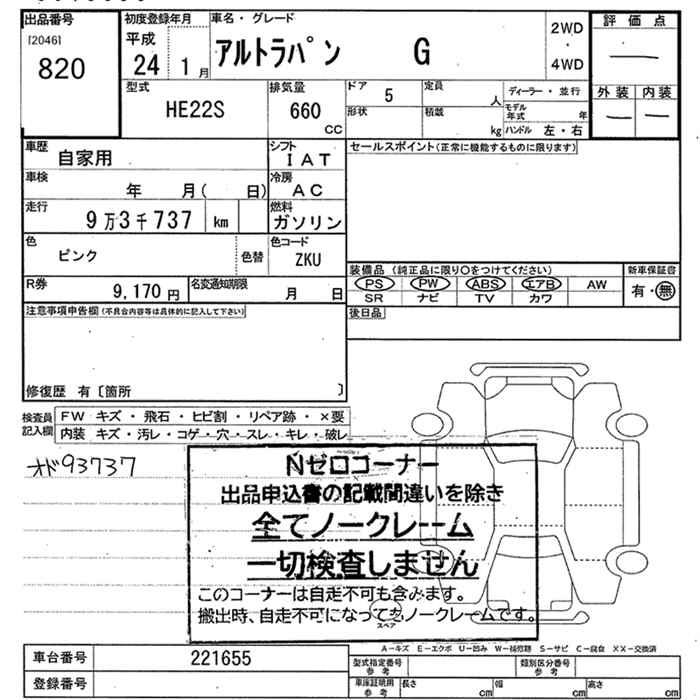 出品番号
[2046]
820
初度登録年月
平成
24 1 月
車名・グレード
アルトラパン G
2WD
・
4WD
評価点
—
外装 内装
— —
型式
HE22S
排気量
660
CC
ドア 5
定員 人
形状
積載 kg
ディーラー・並行
モデル年式 年
ハンドル 左・右
車歴 自家用
シフト IAT
車検 年 月( 日)
冷房 AC
走行 9万3千737 km
燃料 ガソリン
色 ピンク 色替
色コード ZKU
R券 9,170 円
名変通知期限 月 日
セールスポイント(正常に機能するものに限ります)
装備品 (純正品に限り○をつけてください)
新車保証書
PS PW ABS エアB AW
有・無
SR ナビ TV カワ
後日品
注意事項申告欄(不具合内容等は具体的に記入して下さい)
修復歴 有〔箇所 〕
検査員記入欄
FW キズ・飛石・ヒビ割・リペア跡・×要
内装 キズ・汚レ・コゲ・穴・スレ・キレ・破レ
オド93737
Nゼロコーナー
出品申込書の記載間違いを除き
全てノークレーム
一切検査しません
このコーナーは自走不可も含みます。
搬出時、自走不可になってもノークレームです。
スペア
A-キズ E-エクボ U-凹み W-補修跡 S-サビ C-腐食 XX-交換済
車台番号 221655
登録番号
型式指定番号 参考
類別区分番号 参考
車庫証明用 参考
長さ cm 幅 cm 高さ cm